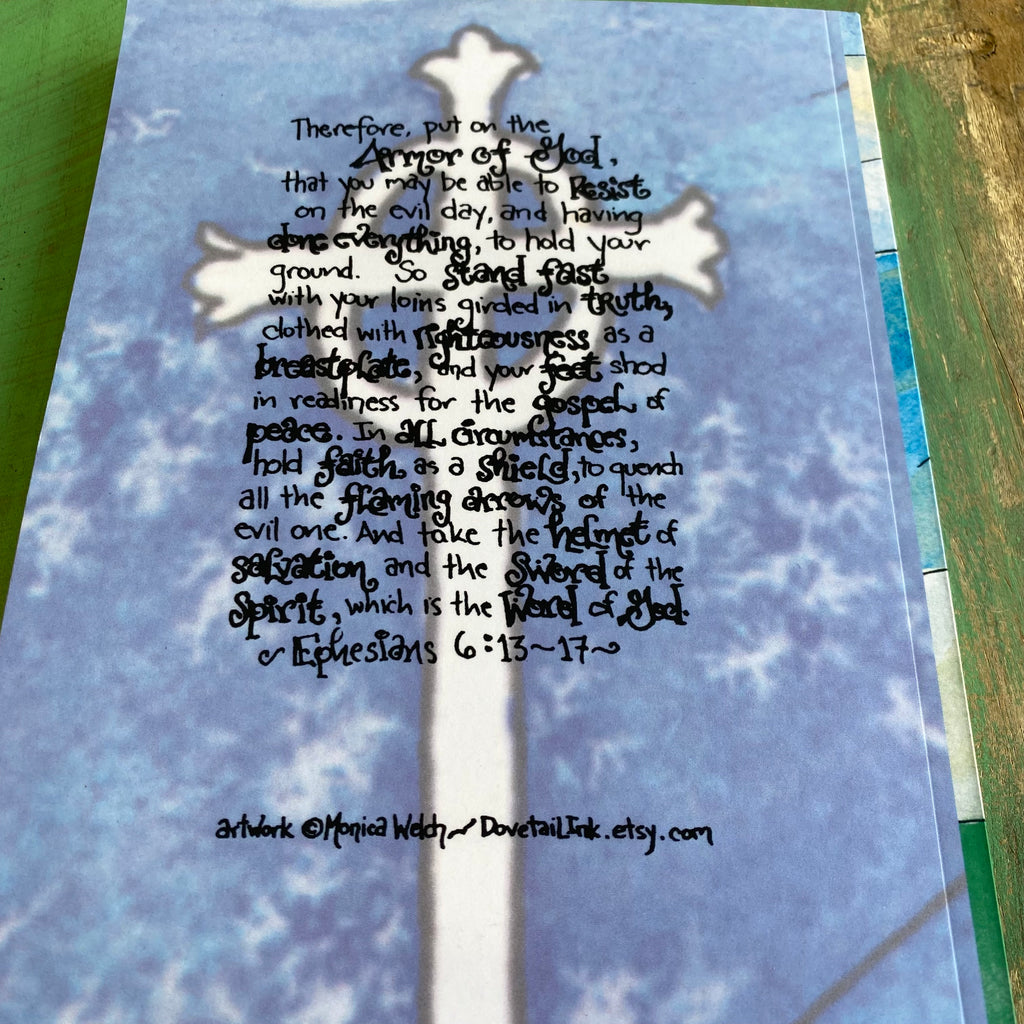 Therefore, put on the
Armor of God,
that you may be able to Resist
on the evil day, and having
done everything, to hold your
ground. So stand fast
with your loins girded in truth,
clothed with righteousness as a
breastplate, and your feet shod
in readiness for the gospel of
peace. In all circumstances,
hold faith as a shield, to quench
all the flaming arrows of the
evil one. And take the helmet of
salvation and the Sword of the
Spirit, which is the Word of God.
~ Ephesians 6:13~17~
artwork ©Monica Welch~DovetailInk.etsy.com